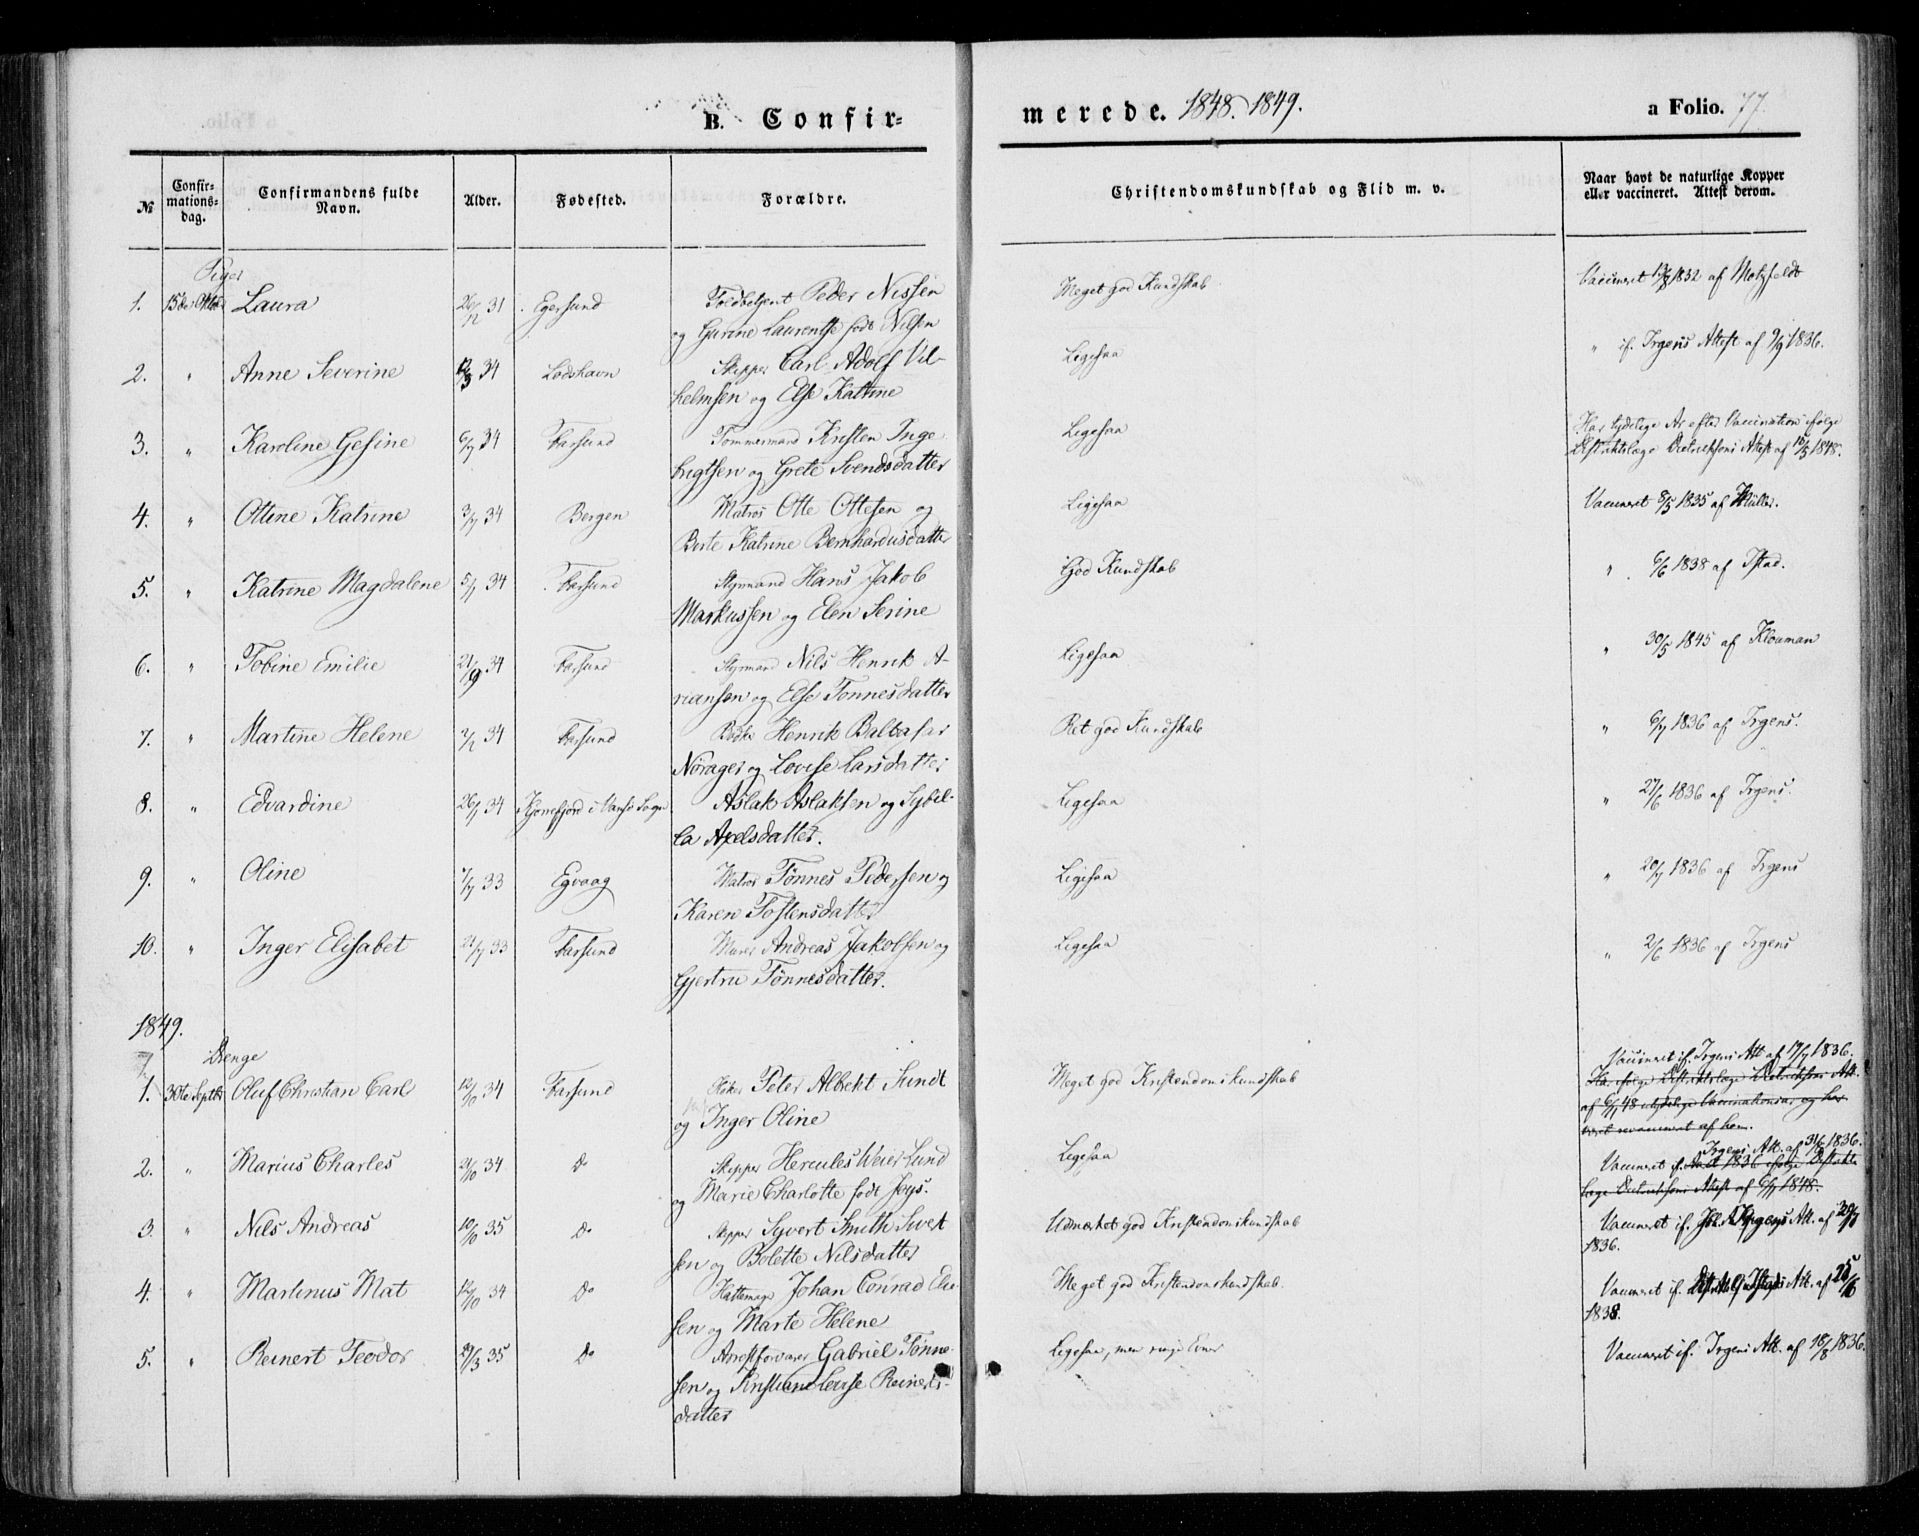 B. Confir-
merede. 1848. 1849.
a Folio. 77.
№
Confir-
mations-
dag.
Confirmandens fulde
Navn.
Alder.
Fødested.
Forældre.
Christendomskundskab og Flid m. v.
Naar havt de naturlige Kopper
eller vaccineret. Attest derom.
Piger
1. 15de Oktbr Laura 26/12 31 Egersund Toldbetjent Peder Nissen Meget god Kundskab Vaccineret 13/8 1832 af Motzfeldt
og Gurine Laurentse født Nilsen
2. " Anne Severine 12/3 34 Lodshavn Skipper Carl Adolf Vil- Ligesaa " if. Irgens Attest af 9/9 1836.
helmsen og Else Katrine
3. " Karoline Gesine 6/7 34 Farsund Tømmermand Kristen Inge Ligesaa Har tydelige Ar efter Vaccination ifølge
brigtsen og Grete Svendsdatter Distriktslæge Diedriksons Attest af 15/5 1848.
4. " Ottine Katrine 3/7 34 Bergen Matros Otte Ottesen og Ligesaa Vaccineret 8/5 1835 af Müller.
Berte Katrine Bernhardusdatter
5. " Katrine Magdalene 5/1 34 Farsund Styrmand Hans Jakob God Kundskab " 6/6 1838 af Istad.
Markussen og Elen Serine
6. " Tobine Emilie 21/9 34 Farsund Styrmand Nils Henrik A- Ligesaa " 30/5 1845 af Kloumann
riansen og Else Tønnesdatter
7. " Martine Helene 2/12 34 Farsund Bødker Henrik Baltasar Ret god Kundskab " 6/7 1836 af Irgens.
Nørager og Lovise Larsdatter
8. " Edvardine 26/1 34 i Vansø Sogn Aslak Aslaksen og Sybil- Ligesaa " 27/6 1836 af Irgens.
la Axelsdatter.
9. " Oline 7/7 33 Egvaag Matros Tønnes Pedersen og Ligesaa " 20/7 1836 af Irgens
Karen Tostensdatter
10. " Inger Elisabet 21/7 33 Farsund Murer Andreas Jakobsen og Ligesaa " 2/6 1836 af Irgens
Gjertru Tønnesdatter.
1849.
Drenge
1. 30te Septbr Oluf Christian Carl 12/10 34 Farsund Peter Albekt Sundt Meget god Kristendomskundskab Vaccineret if. Irgens Att. af 19/7 1836.
og Inger Oline Har ifølge Distriktslæge Diedriksons Att.
af 6/7 48 tydelige Vaccinationsar og har
været revaccineret af ham.
2. " Marius Charles 21/10 34 Do Skipper Hercules Weier Lund Ligesaa Vaccineret if. Irgens Att. af 31/8 1836.
og Marie Charlotte født Jøys. Aaret 1836 ifølge Distrikts
læge Diedriksons Attest af 6/7 1848.
3. " Nils Andreas 10/10 35 Do Skipper Syvert Smith Sivert Udmærket god Kristendomskundskab Vaccineret if. Irgens Att. af 20/7
sen og Bolette Nilsdatter 1836.
4. " Martinus Mat 12/10 34 Do Hattemager Johan Conrad Eli- Meget god Kristendomskundskab. Vaccineret if. Istads Att. af 25/6
sen og Marte Helene 1838.
5. " Reinert Teodor 29/3 35 Do Arrestforvarer Gabriel Tønne- Ligesaa, men ringe Evner Vaccineret if. Irgens Att. af 18/8 1836.
sen og Kristiane Lovise Reinerts-
datter